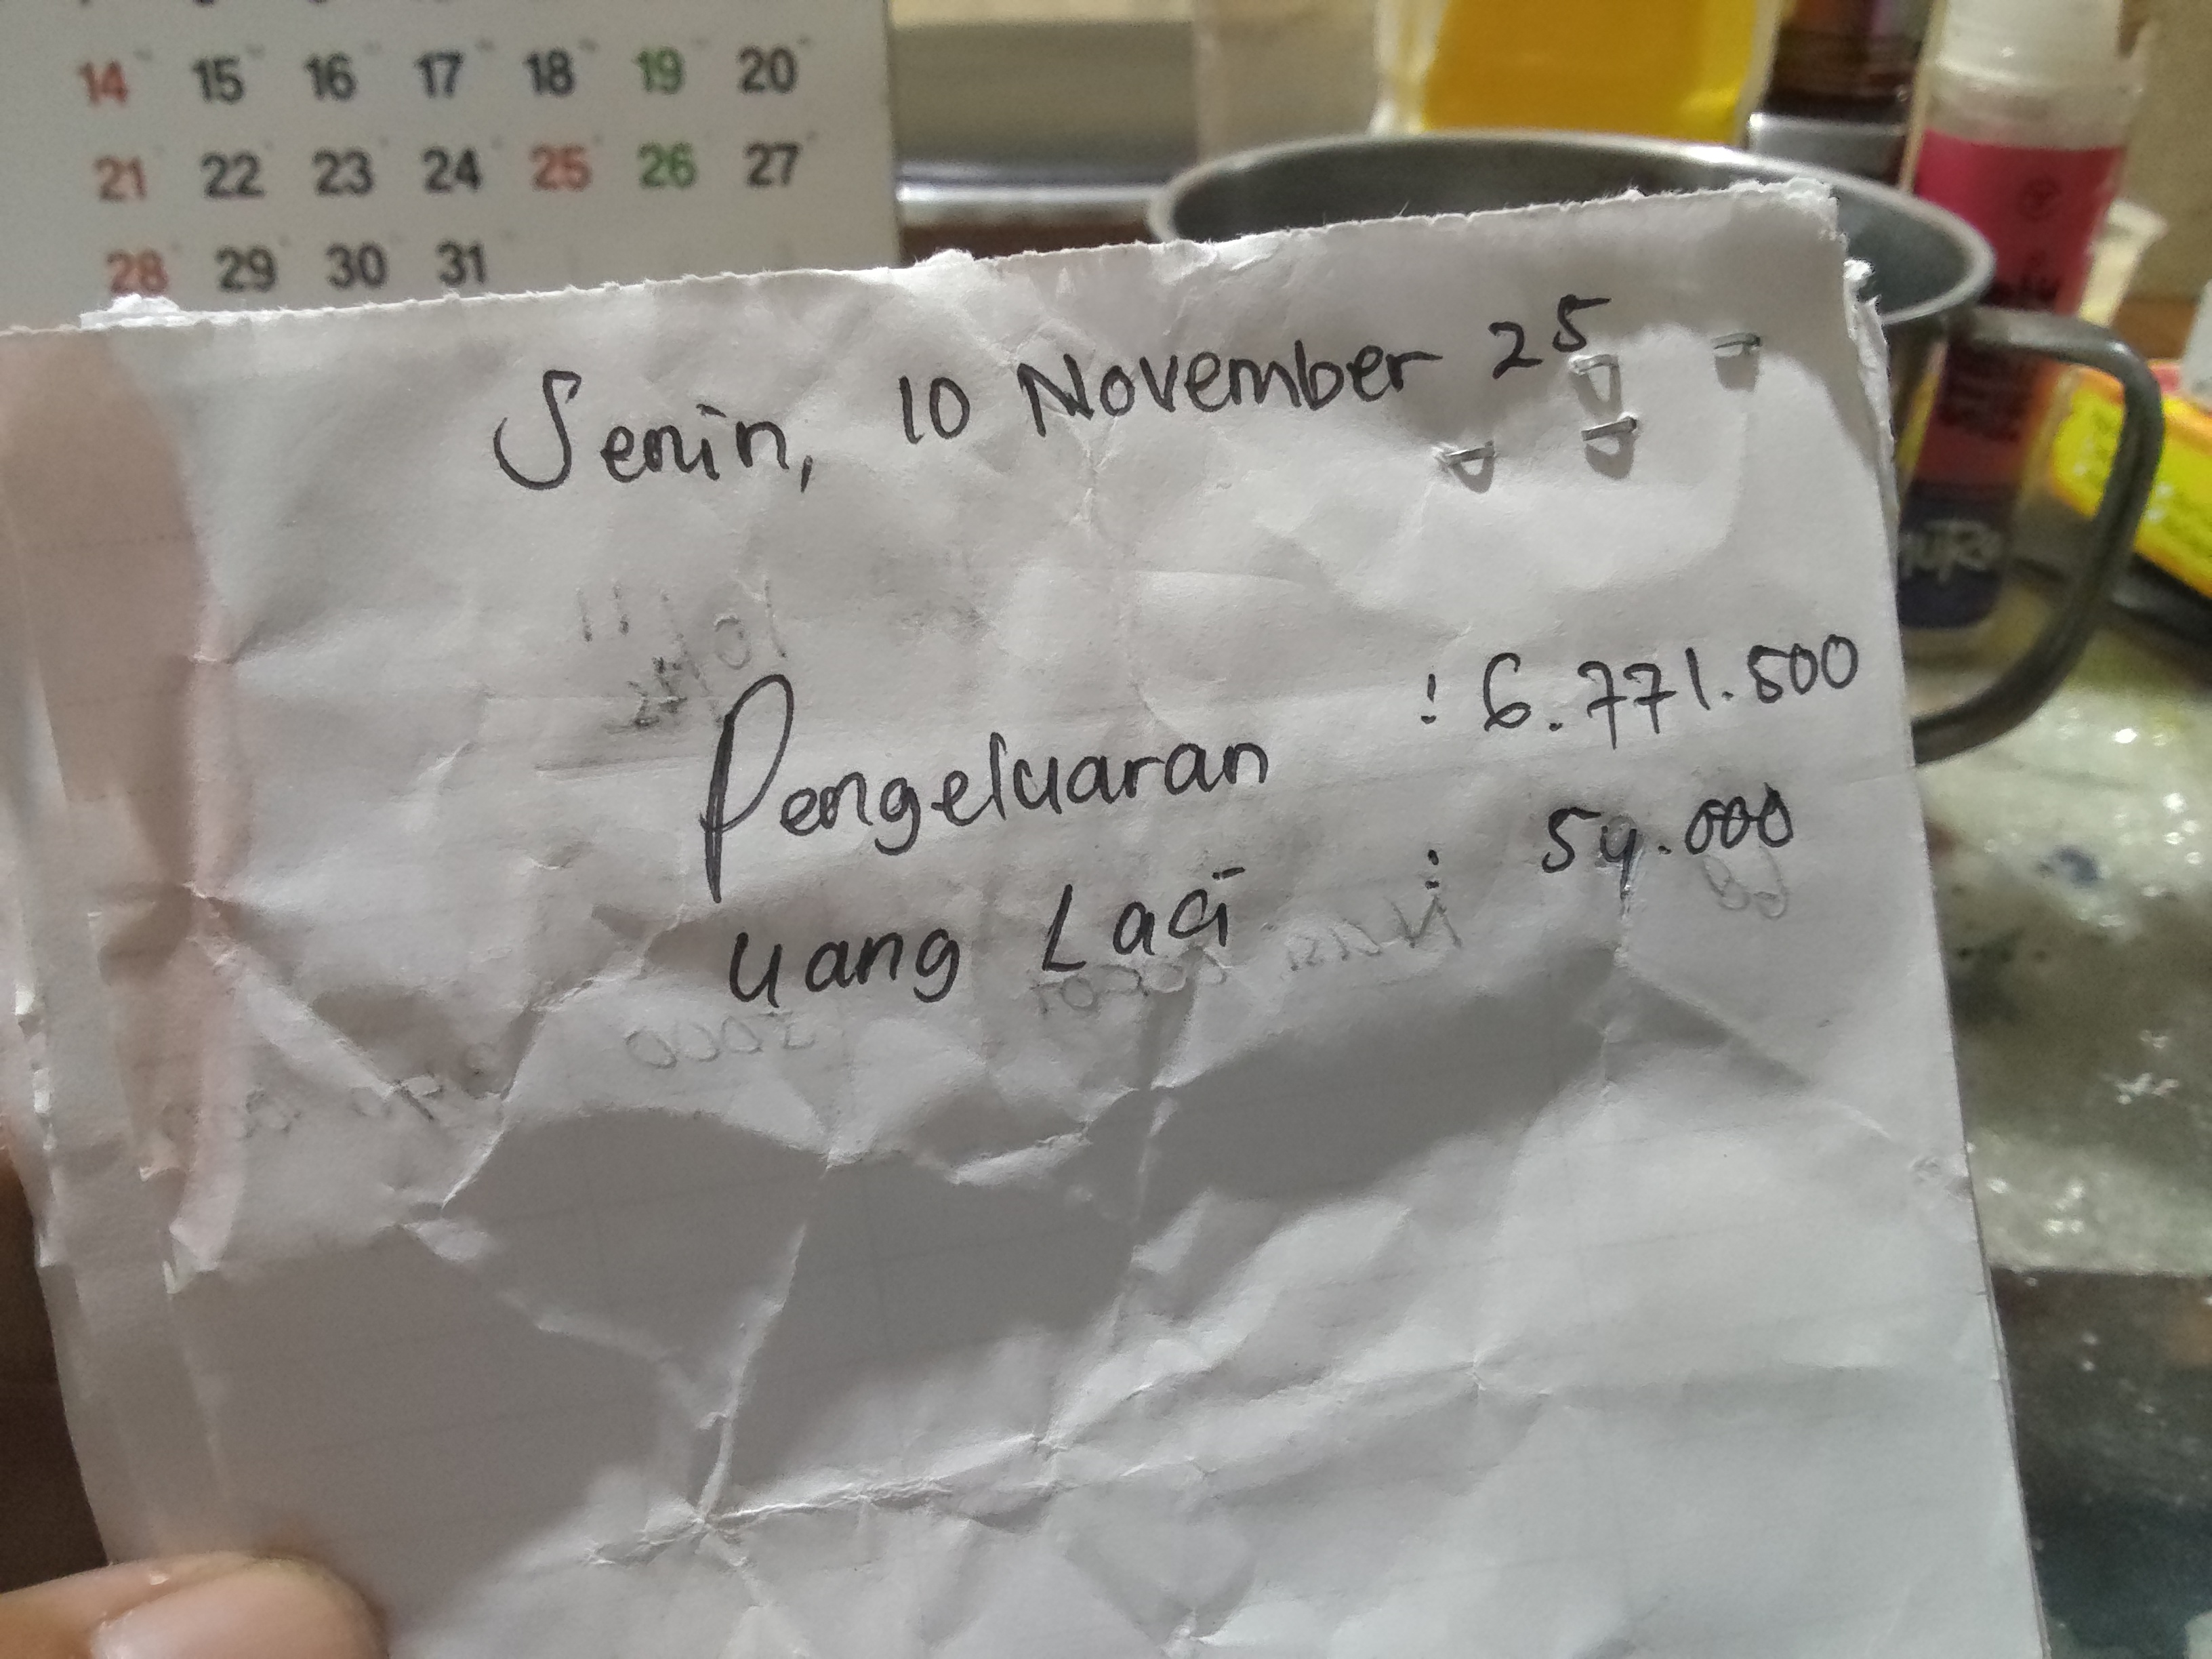 14 15 16 17 18 19 20
21 22 23 24 25 26 27
28 29 30 31
Senin, 10 November 25
Pengeluaran : 6.771.500
uang Laci : 54.000